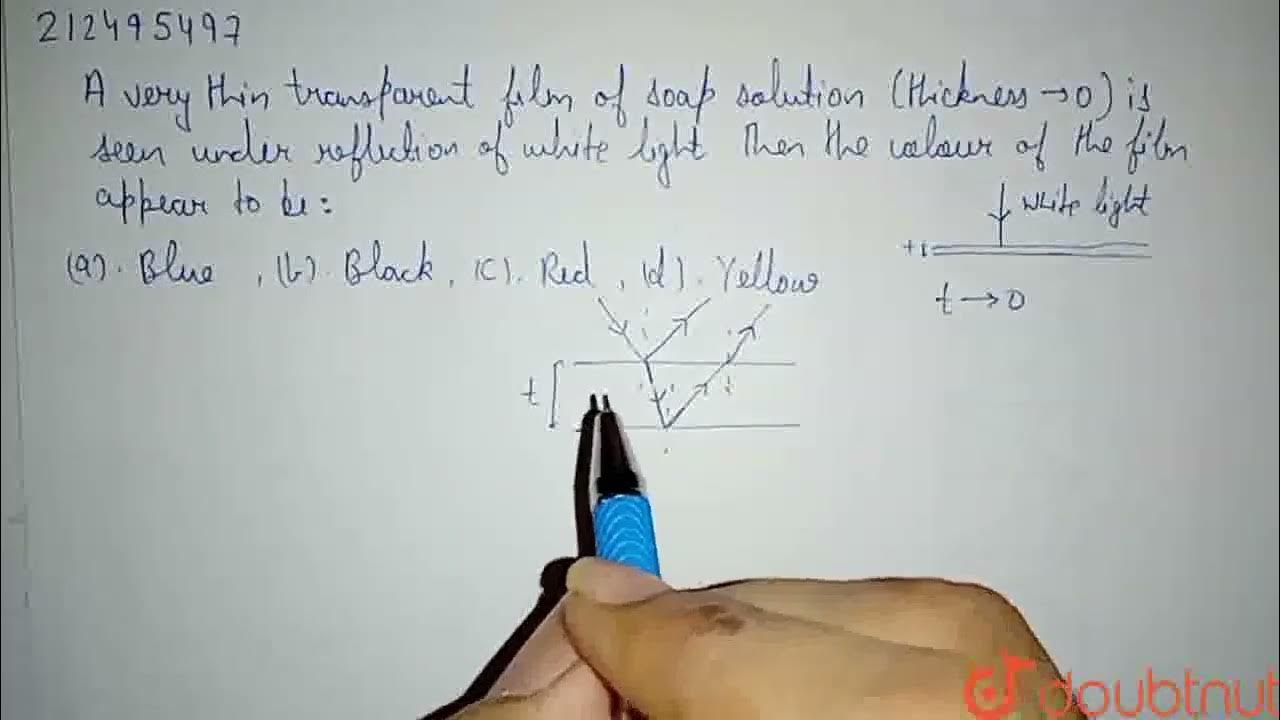 212495497
A very thin transparent film of soap solution (thickness → 0) is
seen under reflection of white light Then the colour of the film
appear to be:
(a). Blue , (b). Black, (c). Red , (d). Yellow
white light
t
t → 0
t
doubtnut